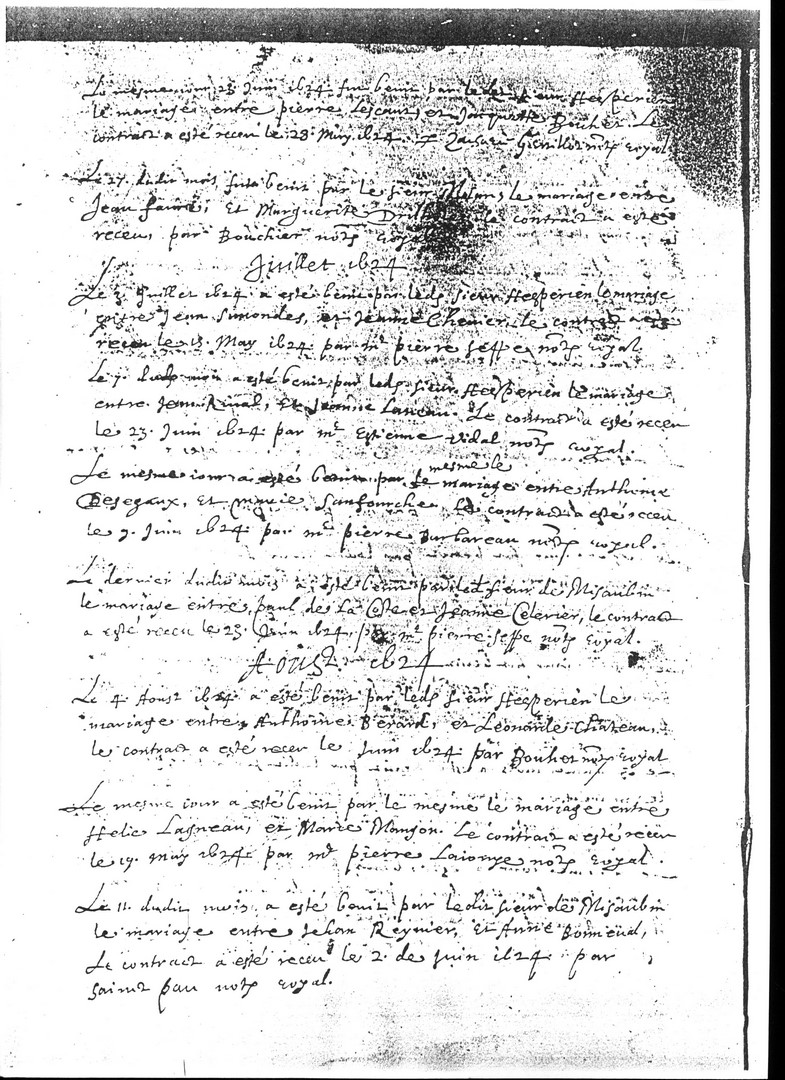 Le mesme iour 23 Juin 1624 fut benit par led sieur Hesperien
le mariage entre pierre Lescaut, et Jacquette Bouhet. Le
contract a esté receu le 28. May 1624. not. royal
Le 27. dudit mois, fut benit par le sieur le mariage entre
Jean faure, Et Marguerite le contract a esté
receu, par Bouchier not. royal
Juillet 1624
Le 3. Juillet 1624 a esté benit par led. sieur Hesperien le mariage
entre Jean Simondes, et Jeanne Chenier, le contract a esté
receu le 13. May 1624 par mr pierre Seffe not. royal
Le 7. dud mois a esté benit par led. sieur Hesperien le mariage
entre Jean Rinal, Et Jeanne Laneau. Le contract a esté receu
le 23. Juin 1624 par mr Estienne Vidal not. royal.
Le mesme iour a esté benit par le mesme le mariage entre Anthoine
Desegaux, Et marie Sanfourche, Le contract a esté receu
le 9. Juin 1624 par mr pierre Barbareau not. royal.
Le dernier dudit mois a esté benit par led sieur de Misaubin
le mariage entre paul de La Coste et Jeanne Celerier, le contract
a esté receu le 23. Juin 1624 par mr pierre Seffe not. royal.
Aoust 1624
Le 4 Aoust 1624 a esté benit par led. sieur Hesperien le
mariage entre Anthoine Berard, et Leonarde Chateau,
le contract a esté receu le Juin 1624 par Bouhet not. royal
Le mesme iour a esté benit par le mesme le mariage entre
Helie Lagneau, et Marie Mangon. Le contract a esté receu
le 19. may 1624 par mr pierre not. royal.
Le 11. dudit mois a esté benit par ledit sieur de Misaubin
le mariage entre Jehan Reynier, Et Anne Bonneud,
Le contract a esté receu le 2. de Juin 1624 par
Sainct pau not. royal.